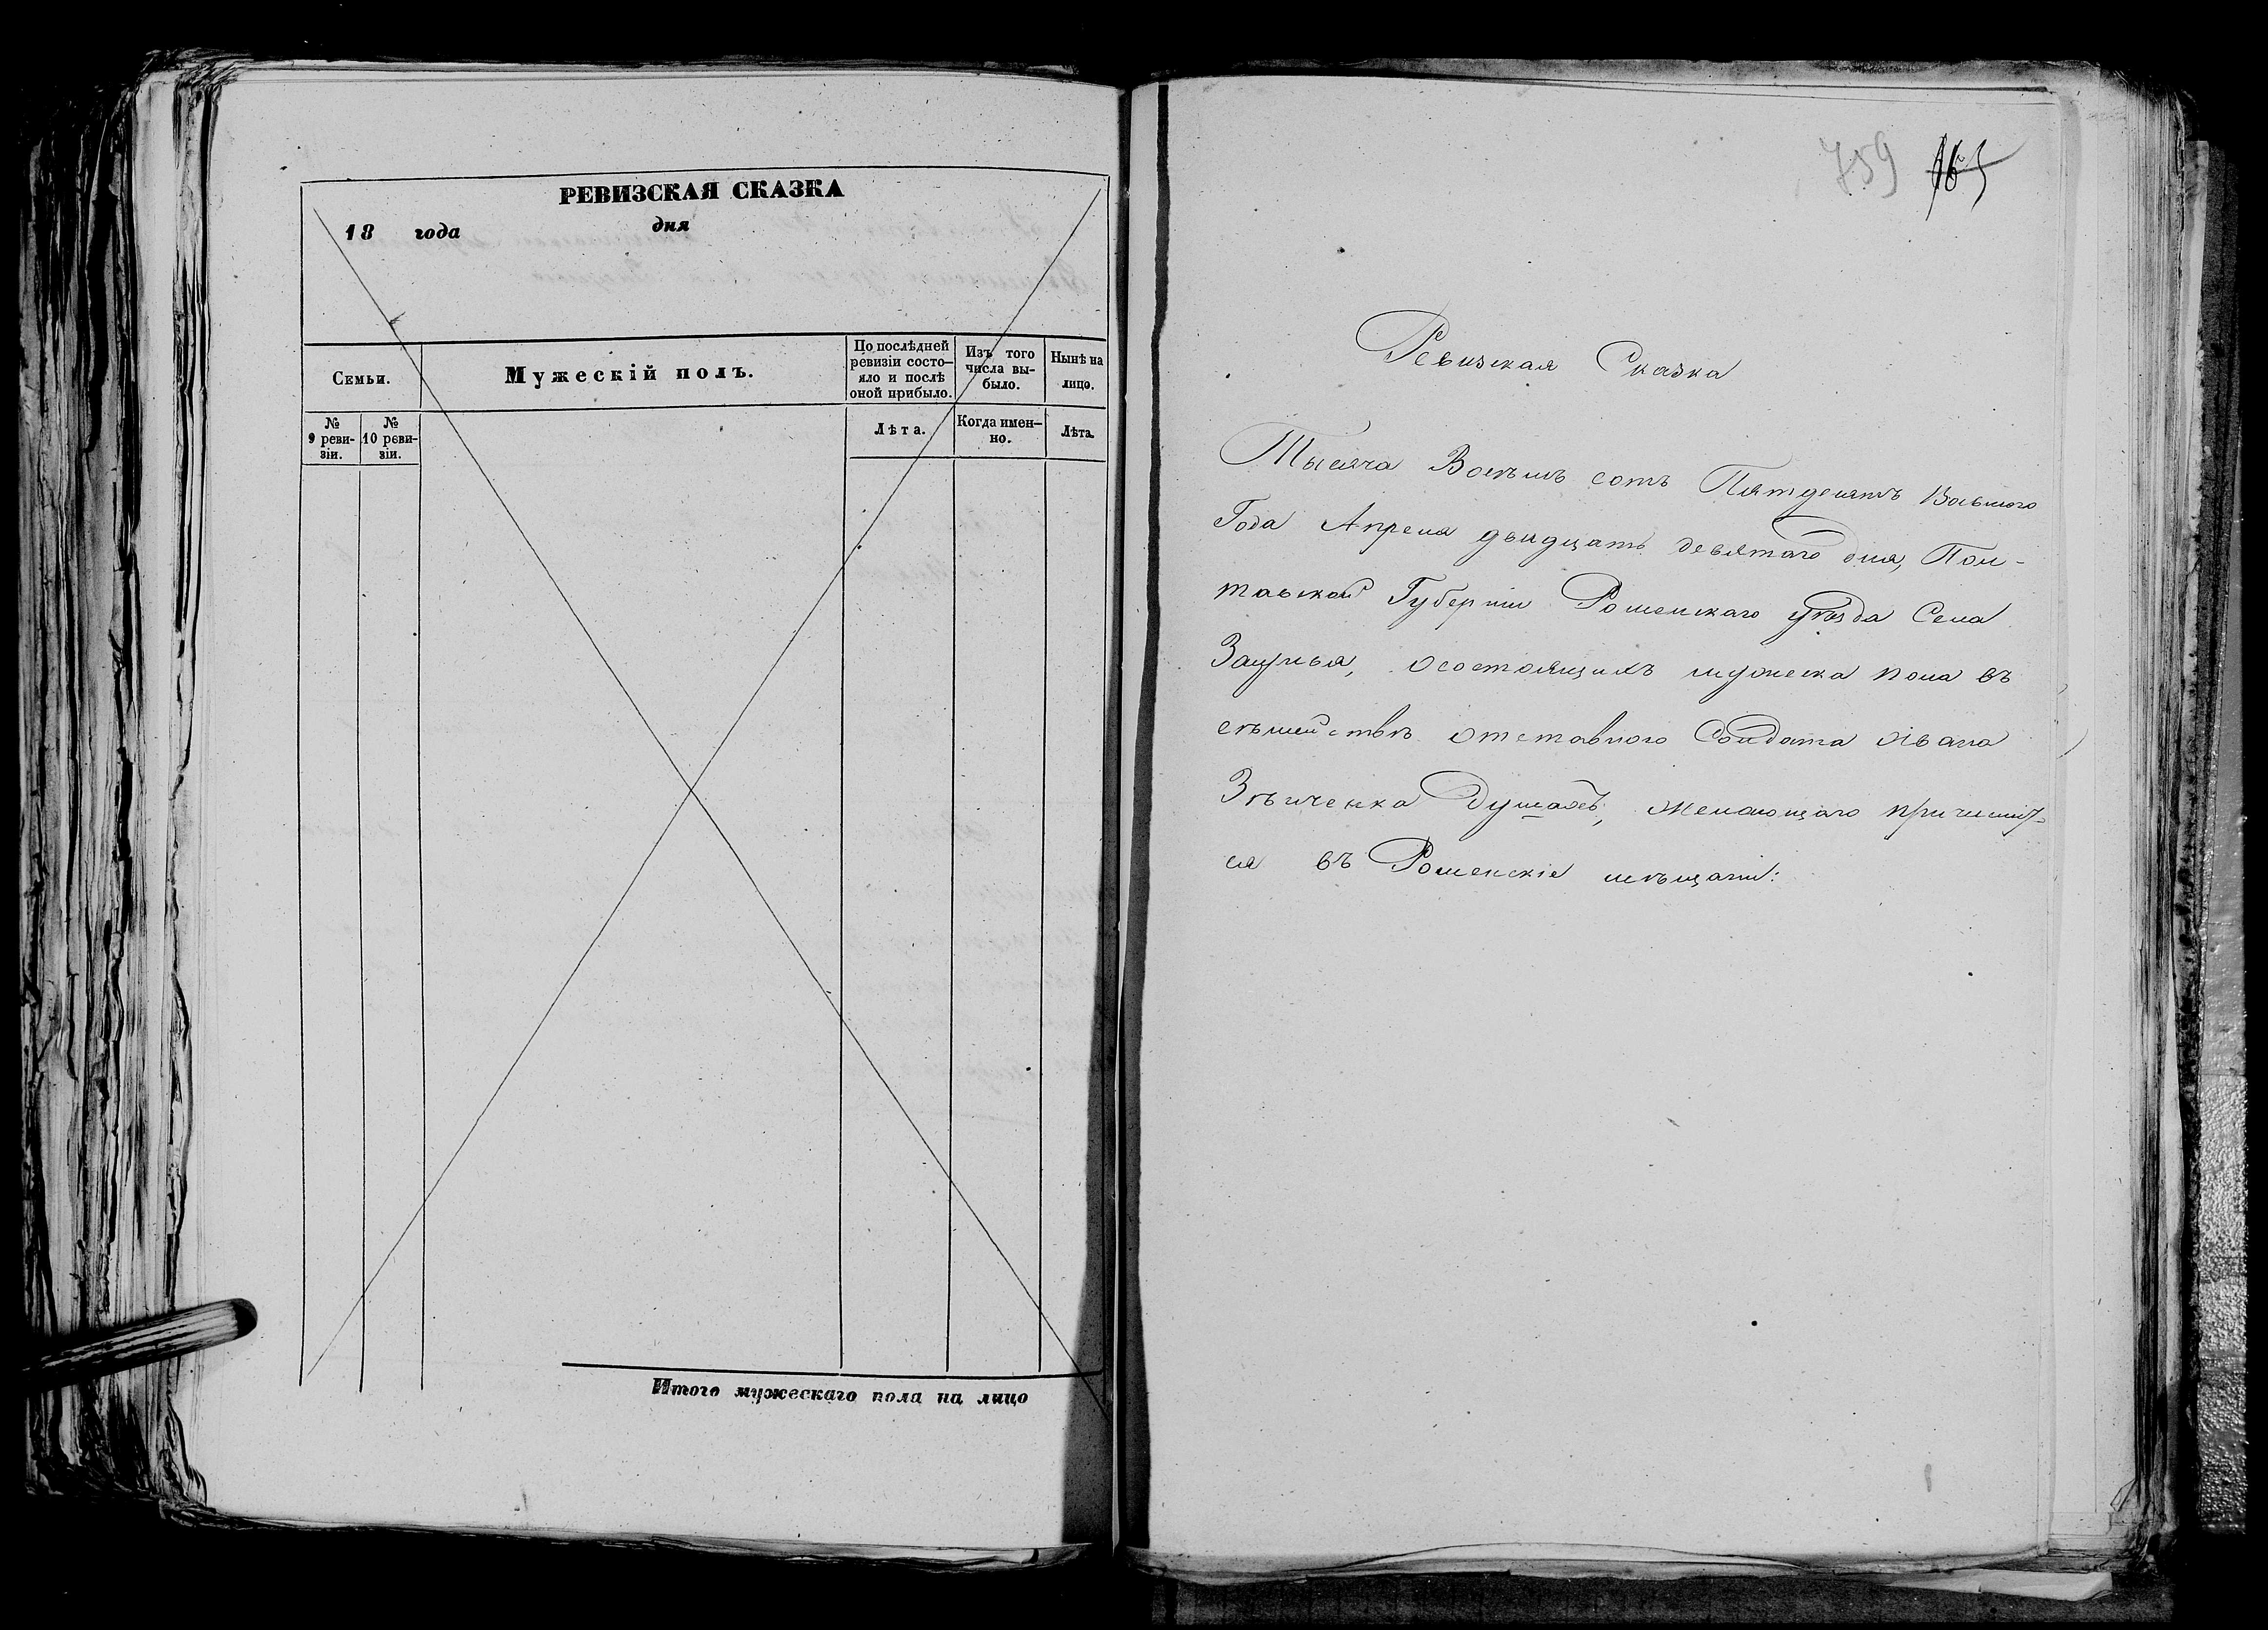 РЕВИЗСКАЯ СКАЗКА
18 года дня
Семьи.
Мужескій полъ.
По послѣдней ревизіи состо-яло и послѣ оной прибыло.
Изъ того числа вы-было.
Нынѣ на лицо.
№ 9 реви-зіи.
№ 10 реви-зіи.
Лѣта.
Когда имен-но.
Лѣта.
Итого мужескаго пола на лицо
759
Ревизская Сказка
Тысяча Восѣмъ сотъ Пятдесятъ Восьмого
Года Апреля двадцать девятаго дня, Пол-
тавской Губерніи Роменскаго уѣзда Села
осостоящихъ мужеска пола въ
сѣмействѣ отставного Солдата Ивана
Зѣиченка душахъ, желающаго причислит-
ся въ Роменскіе мѣщани: